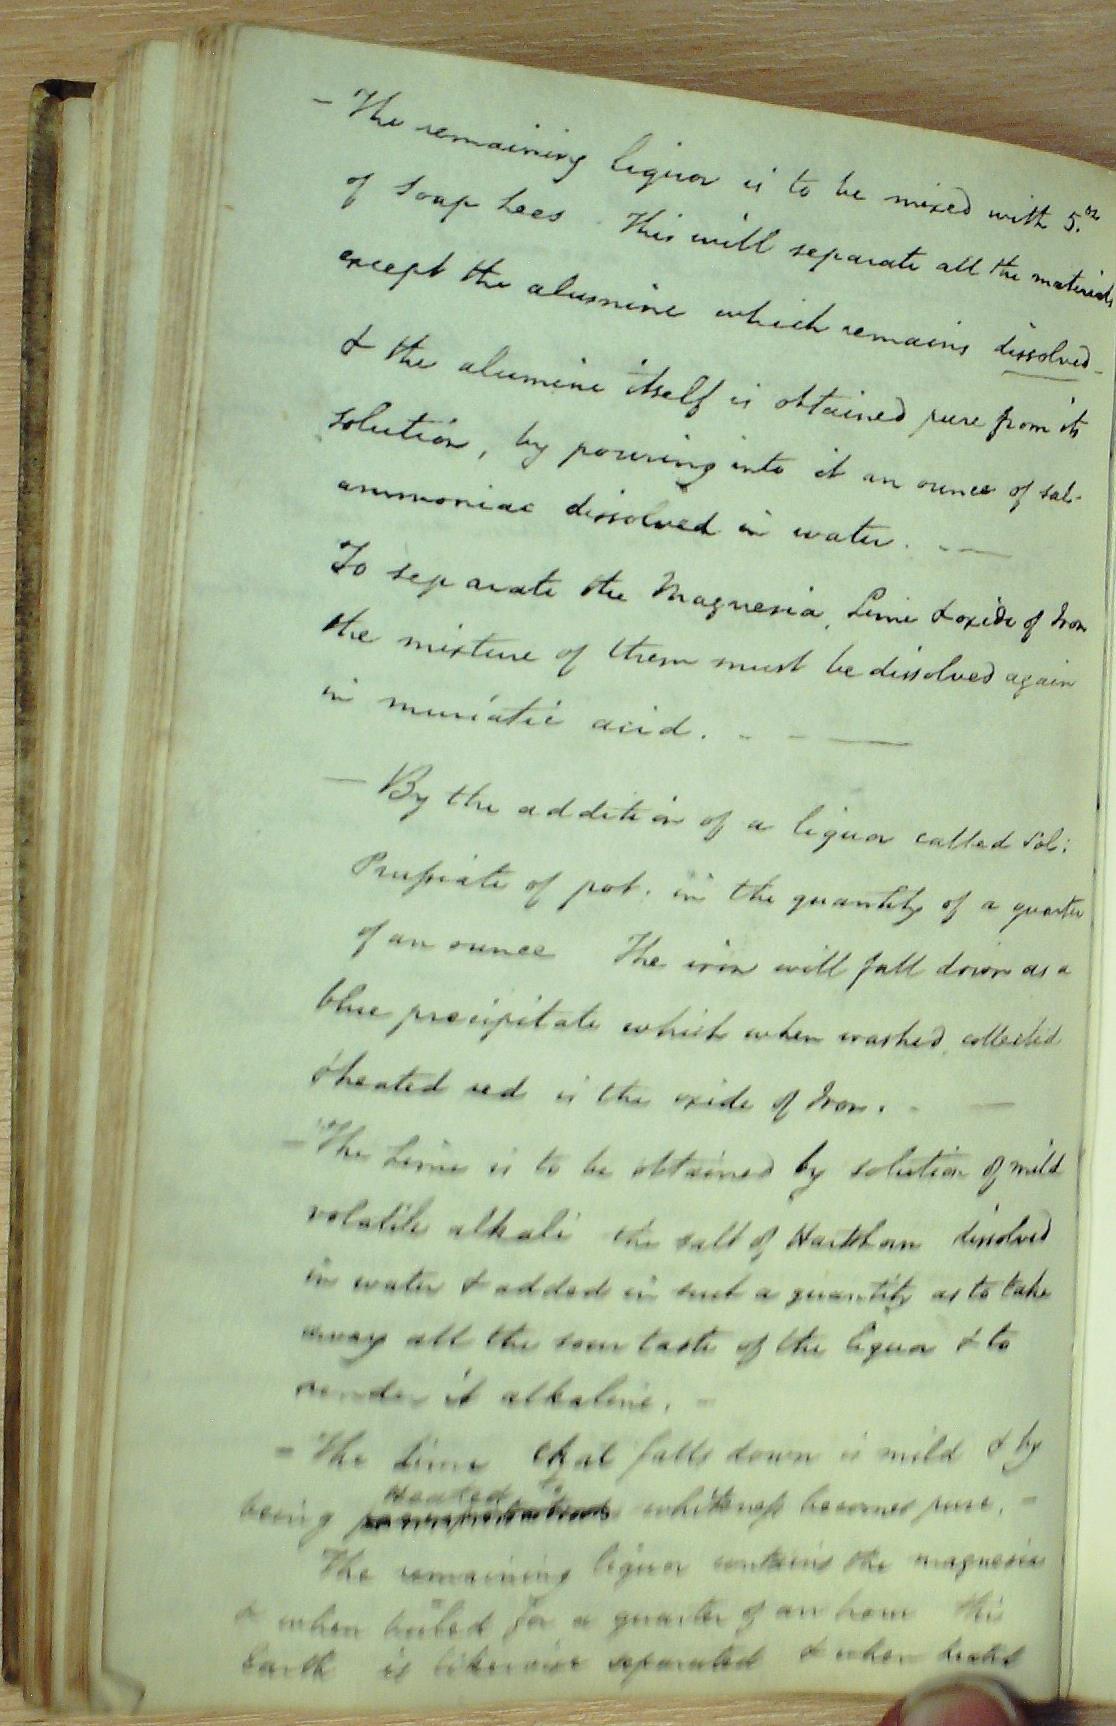 - The remaining liquor is to be mixed with 5.oz
of Soap Lees. This will separate all the materials
except the alumine which remains dissolved -
& the alumine itself is obtained pure from its
solution, by pouring into it an ounce of sal-
ammoniac dissolved in water. - - —
To separate the Magnesia, Lime & oxide of Iron
the mixture of them must be dissolved again
in muriatic acid. - - —
— By the addition of a liquor called Sol:
Prussiate of pot. in the quantity of a quarter
of an ounce The iron will fall down as a
blue precipitate which when washed, collected
& heated red is the oxide of Iron. - —
- The Lime is to be obtained by solution of mild
volatile alkali the salt of Hartshorn dissolved
in water & added in such a quantity as to take
away all the sour taste of the liquor & to
render it alkaline. -
- The Lime that falls down is mild & by
heated to
being whiteness becomes pure. -
The remaining liquor contains the magnesia
& when boiled for a quarter of an hour this
Earth is likewise separated & when heated